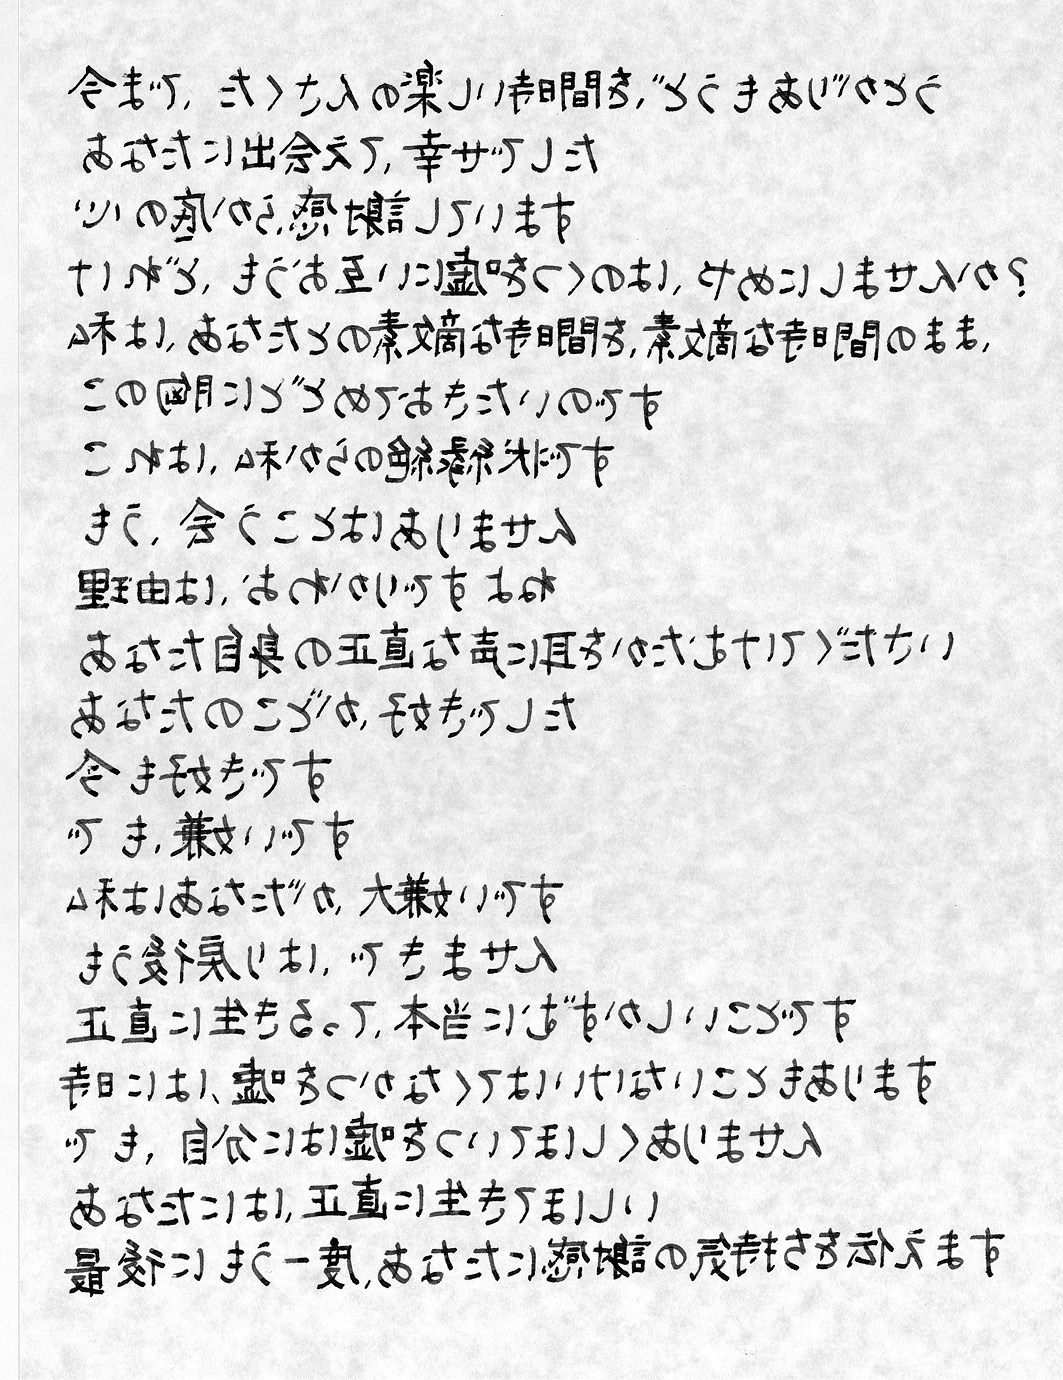 今まで,たくさんの楽しい時間を,どうもありがとう
あなたに出会えて,幸せでした
心の底から,感謝しています
けれど,もうお互いに嘘をつくのは,やめにしませんか?
私は,あなたとの素敵な時間を,素敵な時間のまま,
この胸にとどめておきたいのです
これは,私からの絶縁状です
もう,会うことはありません
理由は,おわかりですよね
あなた自身の正直な声に耳をかたむけてください
あなたのことが,好きでした
今も好きです
でも,嫌いです
私はあなたが,大嫌いです
もう後戻りは,できません
正直に生きるって,本当にむずかしいことです
時には,嘘をつかなくてはいけないこともあります
でも,自分には嘘をついてほしくありません
あなたには,正直に生きてほしい
最後にもう一度,あなたに感謝の気持ちを伝えます